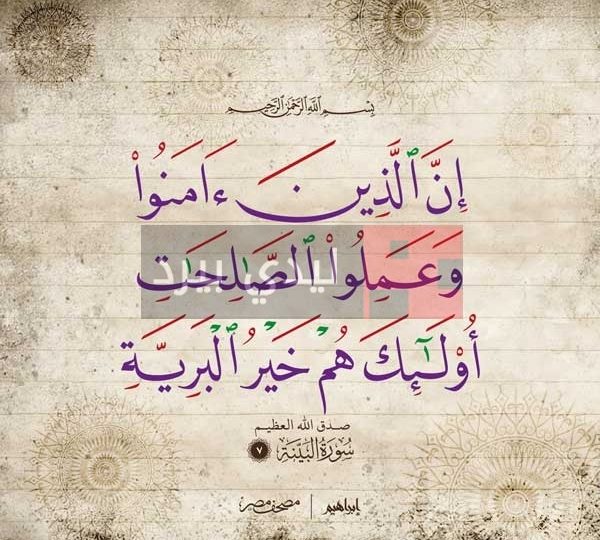 بِسْمِ ٱللَّهِ ٱلرَّحْمَٰنِ ٱلرَّحِيمِ
إِنَّ ٱلَّذِينَ ءَامَنُوا۟
وَعَمِلُوا۟ ٱلصَّٰلِحَٰتِ
ليدي بيرد
أُو۟لَٰٓئِكَ هُمْ خَيْرُ ٱلْبَرِيَّةِ
صدق الله العظيم
سُورَةُ البَيِّنَة ٧
إبراهيم | مصحف مصر